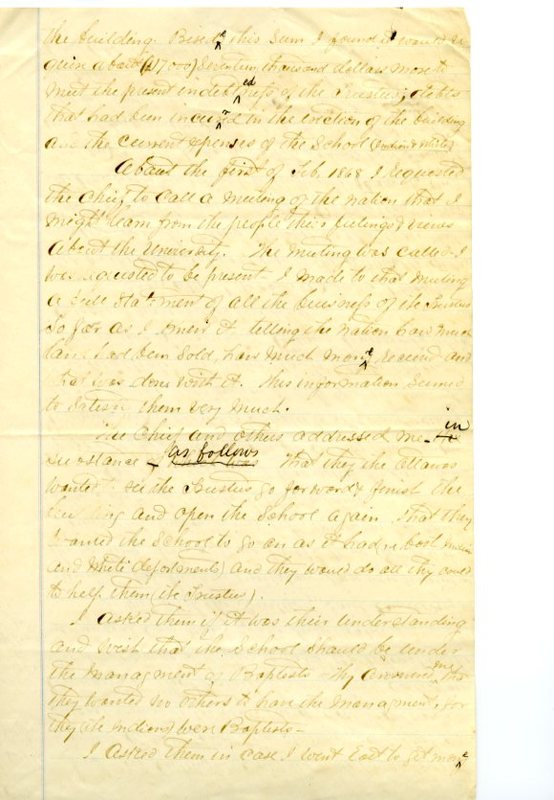 the building. Besides this sum I found it would re-
quire about ($17000) Seventeen thousand dollars more to
meet the present indebtedness of the Trustees, debts
that had been incurred in the erection of the building
and the current expenses of the School (Indian & White)
About the first of Feb. 1868 I requested
the Chief to call a meeting of the nation that I
might learn from the people their feelings & views
About the University. The meeting was called & I
was requested to be present I made to that meeting
a full statement of all the business of the Trustees
So far as I knew it telling the nation how much
land had been sold, how much money received and
what was done with it. This information seemed
to satisfy them very much.
The Chief and others addressed me in
substance as follows That they the Ottawas
wanted to see the Trustees go forward & finish the
building and open the School again. That they
wanted the School to go on as it had, both Indian
and White departments) and they would do all they could
to help them (the Trustees).
I asked them if it was their understanding
and wish that the School should be under
the management of Baptists they answered me, that
they wanted no others to have the management, for
they (the Indians) were Baptists—
I asked them in case I went East to get money